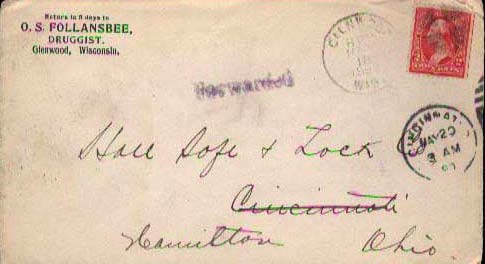 Return in 5 days to
O. S. FOLLANSBEE,
DRUGGIST.
Glenwood, Wisconsin.
GLENWOOD
WIS
Forwarded
CINCINNATI
MAY 20
3 AM
Hall Safe & Lock
Cincinnati
Hamilton Ohio.